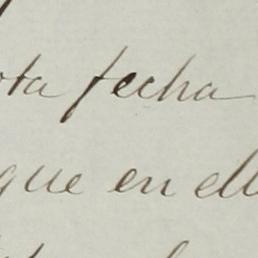 ota fecha
que en ell